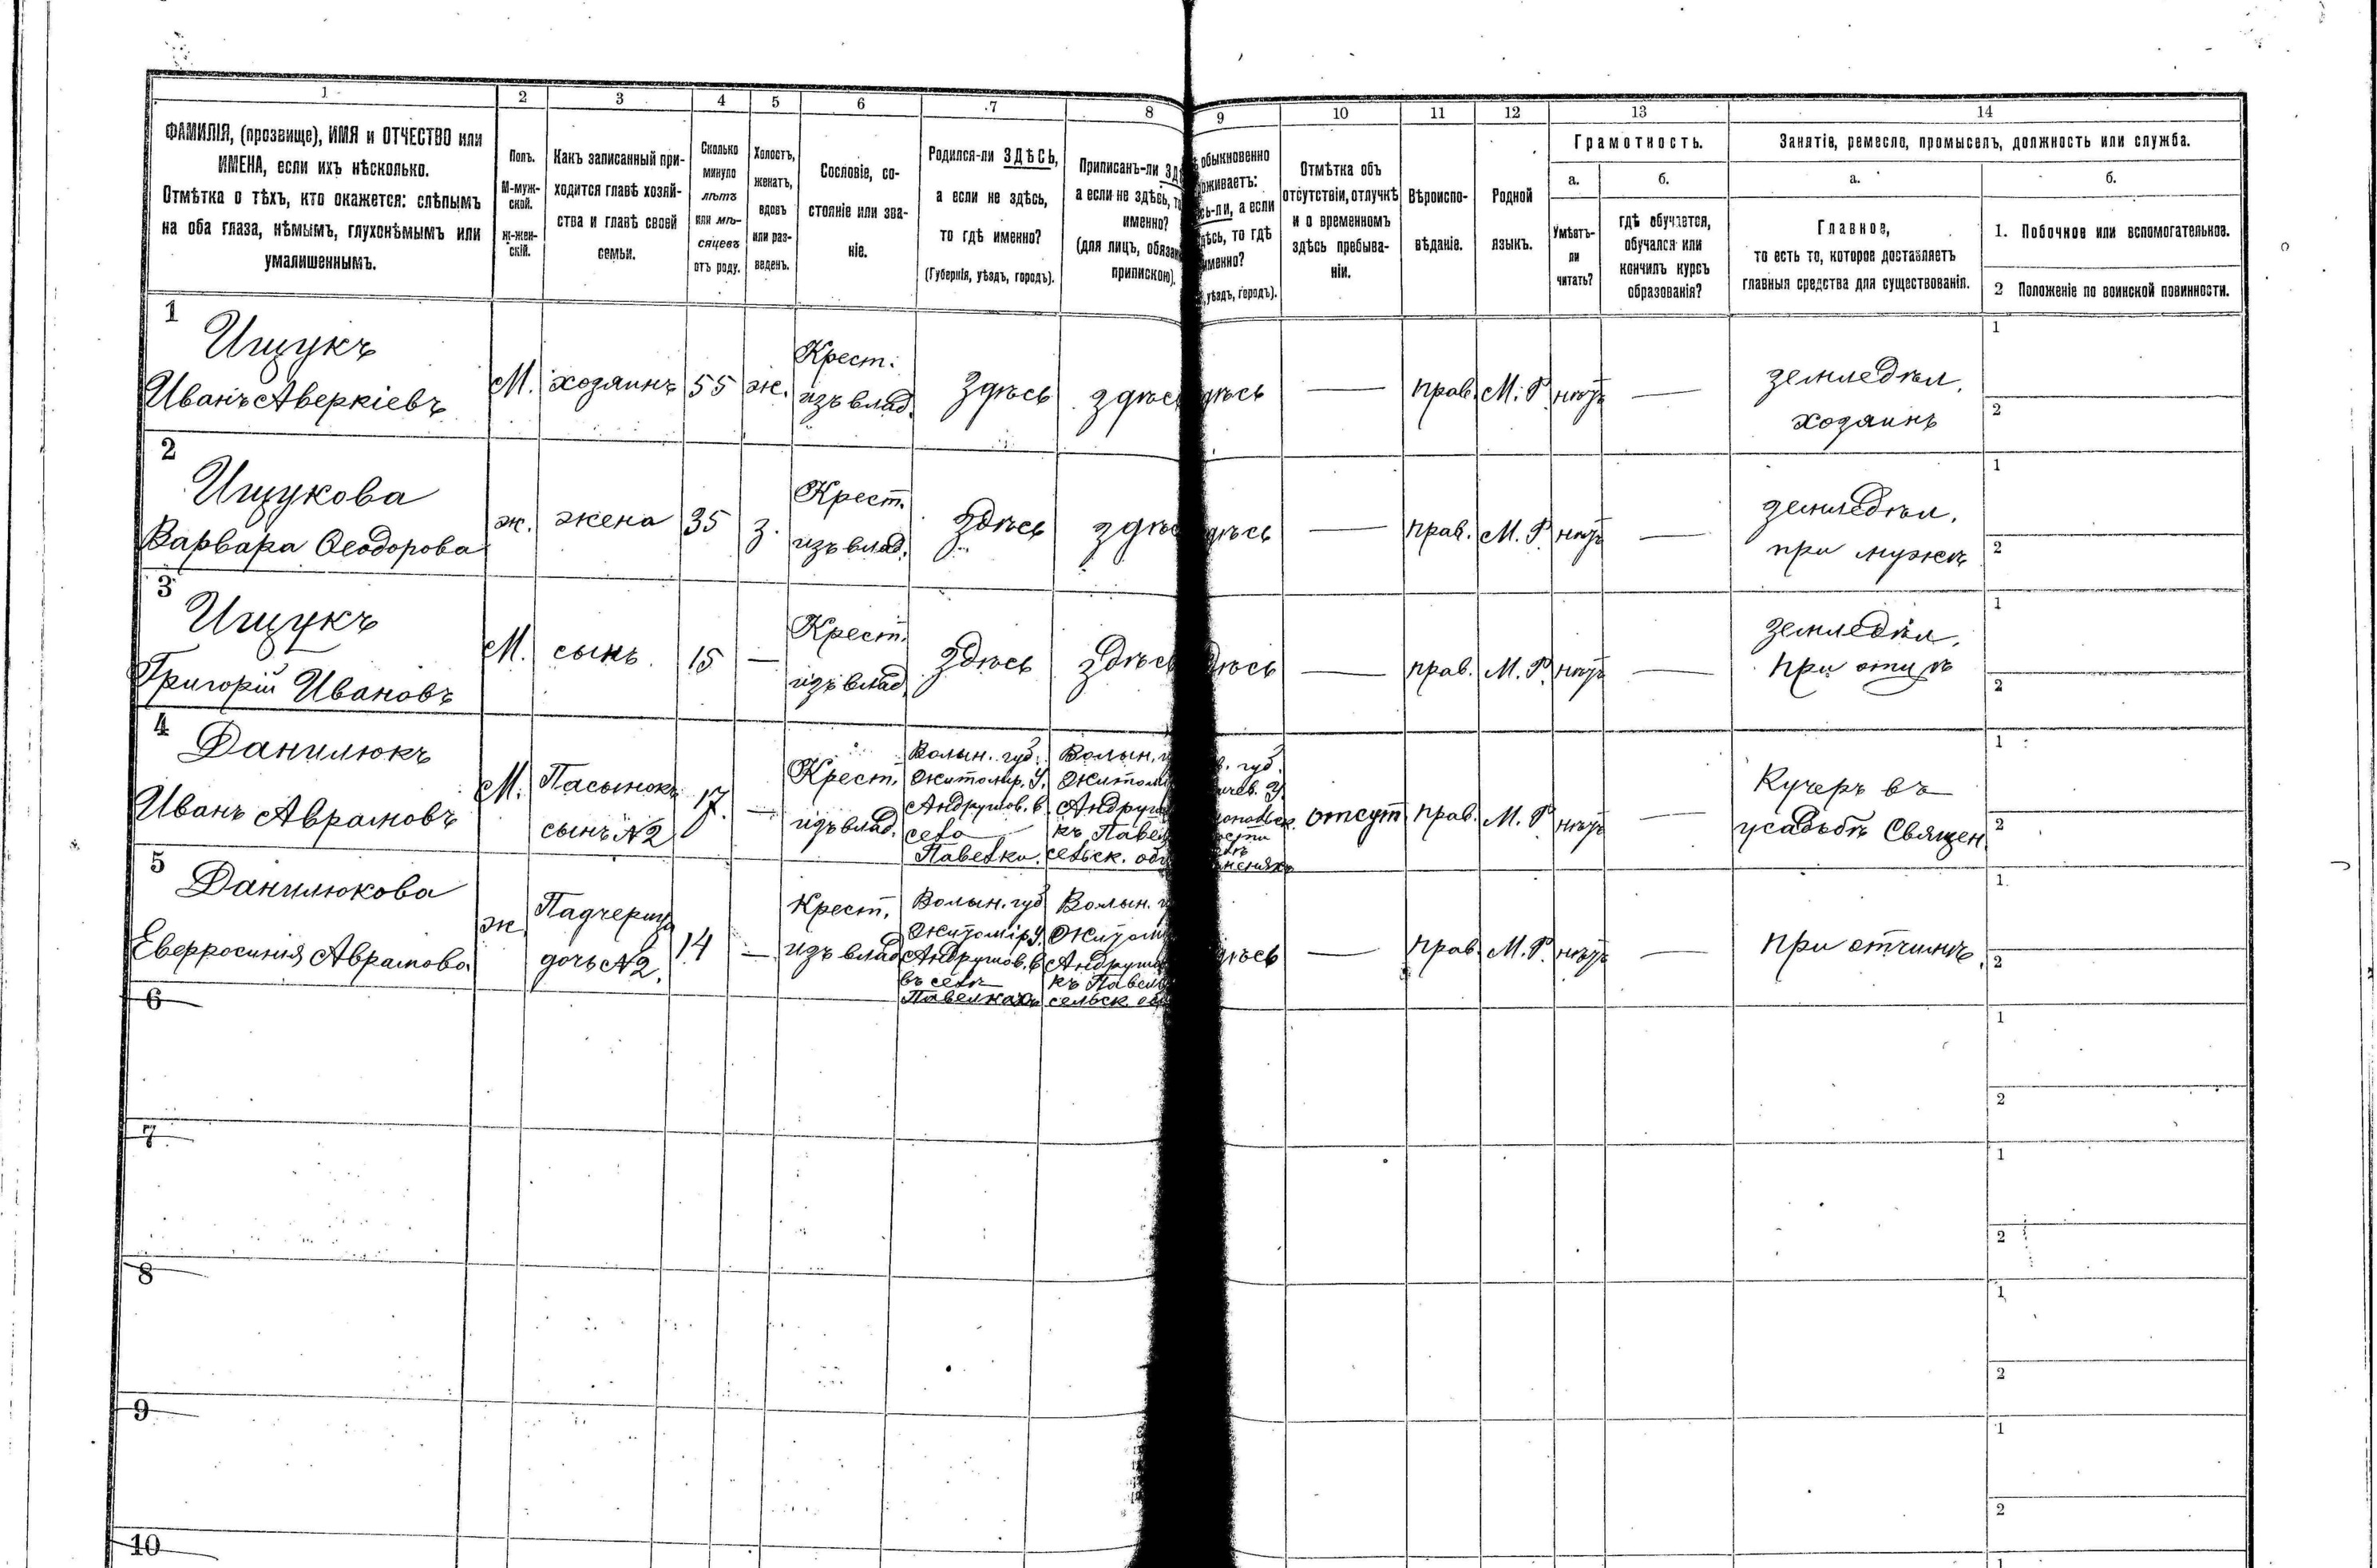 1 2 3 4 5 6 7 8 9 10 11 12 13 14
ФАМИЛІЯ, (прозвище), ИМЯ и ОТЧЕСТВО или
ИМЕНА, если ихъ нѣсколько.
Отмѣтка о тѣхъ, кто окажется: слѣпымъ
на оба глаза, нѣмымъ, глухонѣмымъ или
умалишеннымъ.
Полъ.
М-муж-
ской.
Ж-жен-
скій.
Какъ записанный при-
ходится главѣ хозяй-
ства и главѣ своей
семьи.
Сколько
минуло
лѣтъ
или мѣ-
сяцевъ
отъ роду.
Холостъ,
женатъ,
вдовъ
или раз-
веденъ.
Сословіе, со-
стояніе или зва-
ніе.
Родился-ли ЗДѢСЬ,
а если не здѣсь,
то гдѣ именно?
(Губернія, уѣздъ, городъ).
Приписанъ-ли
а если не здѣсь,
именно?
(для лицъ,
припискою).
обыкновенно
а если
то гдѣ
именно?
уѣздъ, городъ).
Отмѣтка объ
отсутствіи, отлучкѣ
и о временномъ
здѣсь пребыва-
ніи.
Вѣроиспо-
вѣданіе.
Родной
языкъ.
Грамотность.
а.
Умѣетъ-
ли
читать?
б.
гдѣ обучается,
обучался или
кончилъ курсъ
образованія?
Занятіе, ремесло, промыселъ, должность или служба.
а.
Главное,
то есть то, которое доставляетъ
главныя средства для существованія.
б.
1. Побочное или вспомогательное.
2 Положеніе по воинской повинности.
1
Ищукъ
Иванъ Аверкіевъ
М. хозяинъ 55 ж.
Крест.
изъ влад.
Здѣсь
прав. М. Р. нѣтъ
земледѣл.
хозяинъ
1
2
2
Ищукова
Варвара Ѳеодорова
ж. жена 35 з.
Крест.
изъ влад.
Здѣсь
прав. М. Р. нѣтъ
земледѣл.
при мужѣ
1
2
3
Ищукъ
Григорій Ивановъ
М. сынъ 15 —
Крест.
изъ влад.
Здѣсь
прав. М. Р. нѣтъ
земледѣл.
при отцѣ
1
2
4
Данилюкъ
Иванъ Аврамовъ
М. Пасынокъ
сынъ №2
17. —
Крест.
изъ влад.
Волын. губ.
Житомир. у.
Андрушов. в.
села
Павелки.
Волын.
сельск.
губ.
отсут прав. М. Р. нѣтъ
Кучеръ въ
усадьбѣ Священ.
1
2
5
Данилюкова
Еверросинія Аврамова
ж. Падчерица
дочь №2.
14 —
Крест.
изъ влад
Волын. губ
Житомір у.
Андрушов. в
въ селѣ
Павелкахъ
Волын.
сельск
прав М. Р. нѣтъ
при отчимѣ.
1
2
6
1
2
7
1
2
8
1
2
9
1
2
10
1